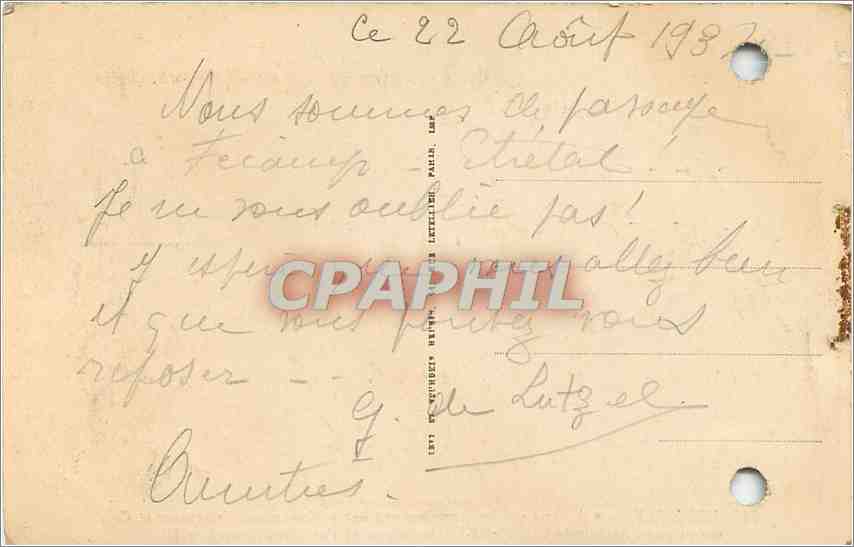 Ce 22 Août 193
Nous sommes de passage
a Fecamp - Etretat!..
Je ne vous oublie pas!
J'espère que vous allez bien
et que vous pouvez vous
reposer - -.
G. de Lutzel.
CPAPHIL
LETELLIER, PARIS, IMP